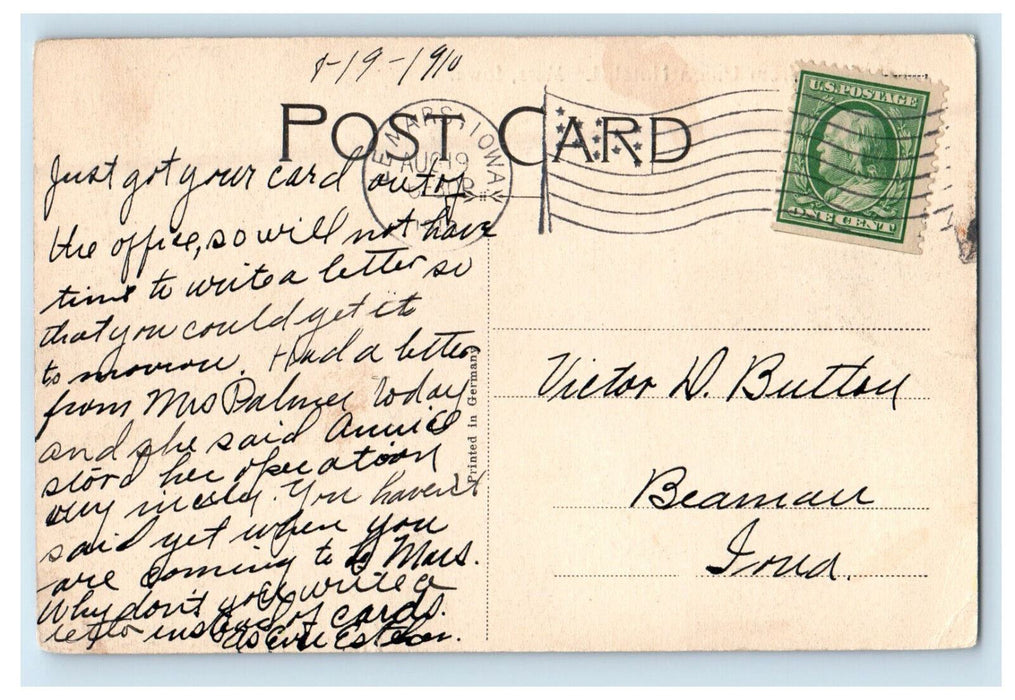 8-19-1910
POST CARD
LE MARS, IOWA
AUG 19
U.S. POSTAGE
ONE CENT
Just got your card out of
the office, so will not have
time to write a letter so
that you could get it
to morrow. Had a letter
from Mrs Palmer today
and she said Annie
stord her operation
very nicely. You haven't
said yet when you
are coming to Le Mars.
Why don't you write a
letter instead of cards.
Printed in Germany
Victor D. Button
Beaman
Iowa.